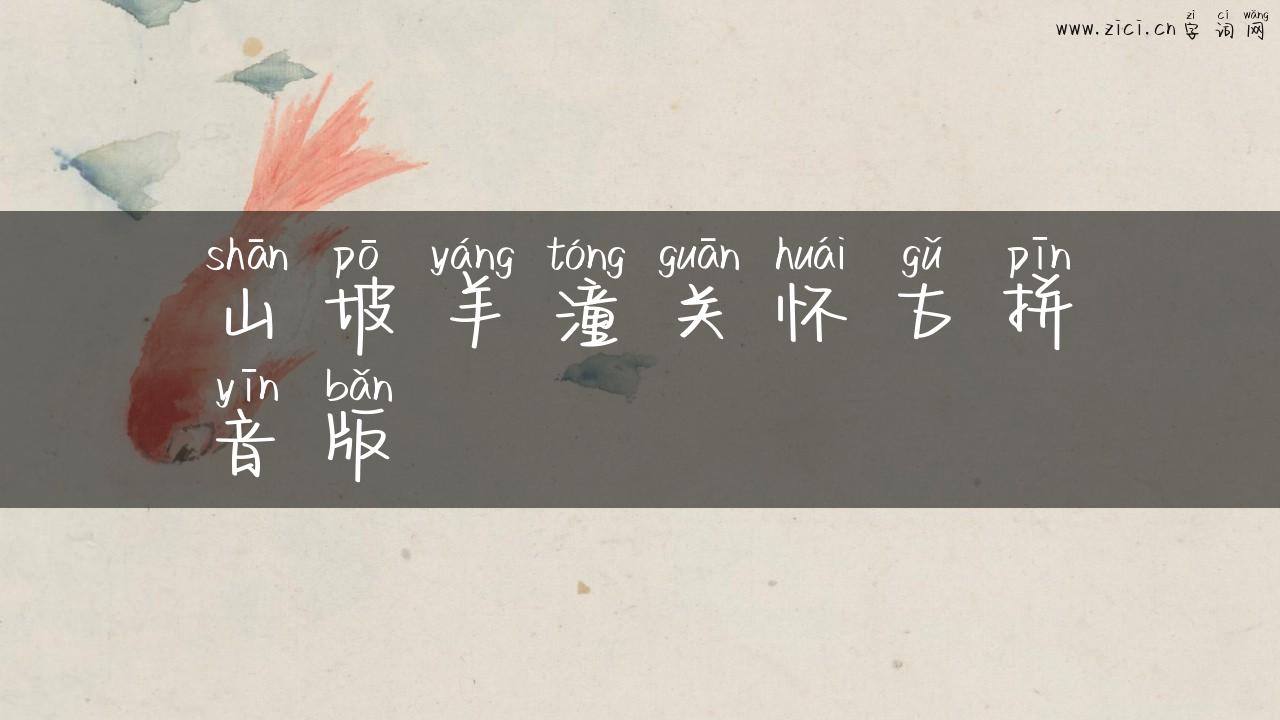 zì cí wǎng
www.zici.cn 字词网
shān pō yáng tóng guān huái gǔ pīn
山坡羊潼关怀古拼
yīn bǎn
音版